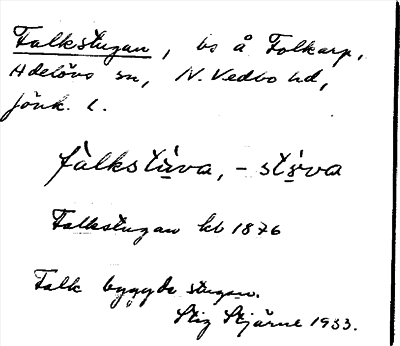 Falkstugan, bs å Folkarp,
Adelövs sn, N. Vedbo hd,
Jönk. l.
fàlkstùva, - stùva
Falkstugan kb 1876
Falk byggde stugan.
Stig Stjärne 1933.